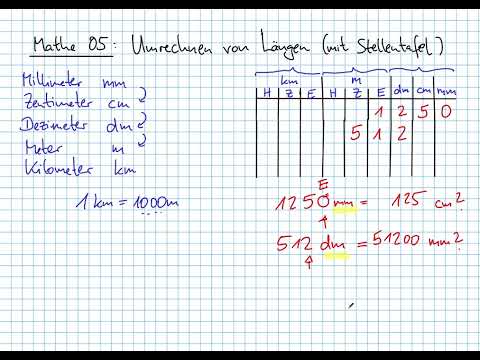 Mathe 05: Umrechnen von Längen (mit Stellentafel)
Millimeter mm
Zentimeter cm
Dezimeter dm
Meter m
Kilometer km
1 km = 1000m
km m
H Z E H Z E dm cm mm
1 2 5 0
5 1 2
E
1250 mm = 125 cm?
512 dm = 51200 mm?